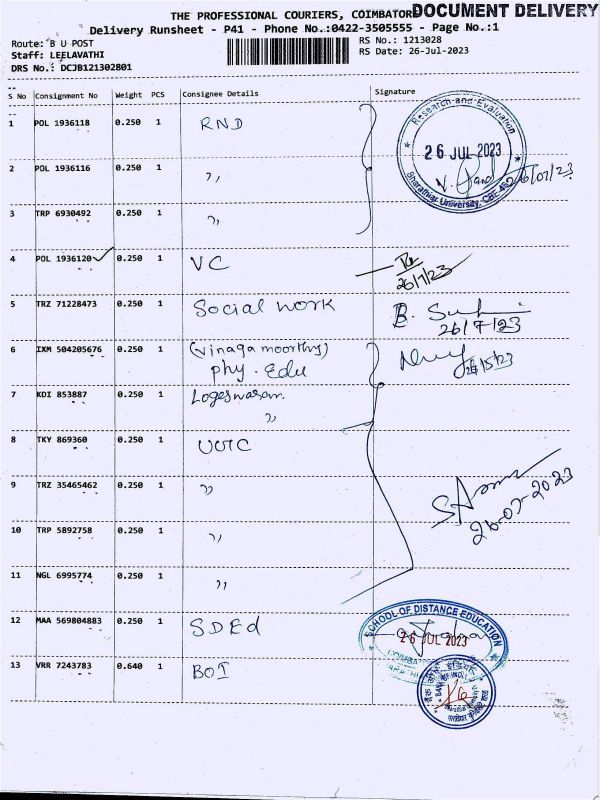 THE PROFESSIONAL COURIERS, COIMBATORE
DOCUMENT DELIVERY
Delivery Runsheet - P41 - Phone No.:0422-3505555 - Page No.:1
Route: B U POST
RS No.: 1213028
Staff: LEELAVATHI
RS Date: 26-Jul-2023
DRS No.: DCJB121302801
S No Consignment No Weight PCS Consignee Details Signature
1 POL 1936118 0.250 1 RND
Research and Evaluation
26 JUL 2023
Bharathiar University, CBE
26/07/23
2 POL 1936116 0.250 1 ,,
3 TRP 6930492 0.250 1 ,,
4 POL 1936120 0.250 1 VC
26/7/23
5 TRZ 71228473 0.250 1 Social work
26/7/23
6 IXM 504205676 0.250 1 (vinaga moorthy)
phy. Edu
7 KDI 853887 0.250 1 Logeswaran.
,,
8 TKY 869360 0.250 1 UOTC
9 TRZ 35465462 0.250 1 ,,
26-07-2023
10 TRP 5892758 0.250 1 ,,
11 NGL 6995774 0.250 1 ,,
12 MAA 569804883 0.250 1 SDEd
SCHOOL OF DISTANCE EDUCATION
26 JUL 2023
13 VRR 7243783 0.640 1 BOI
BANK OF INDIA